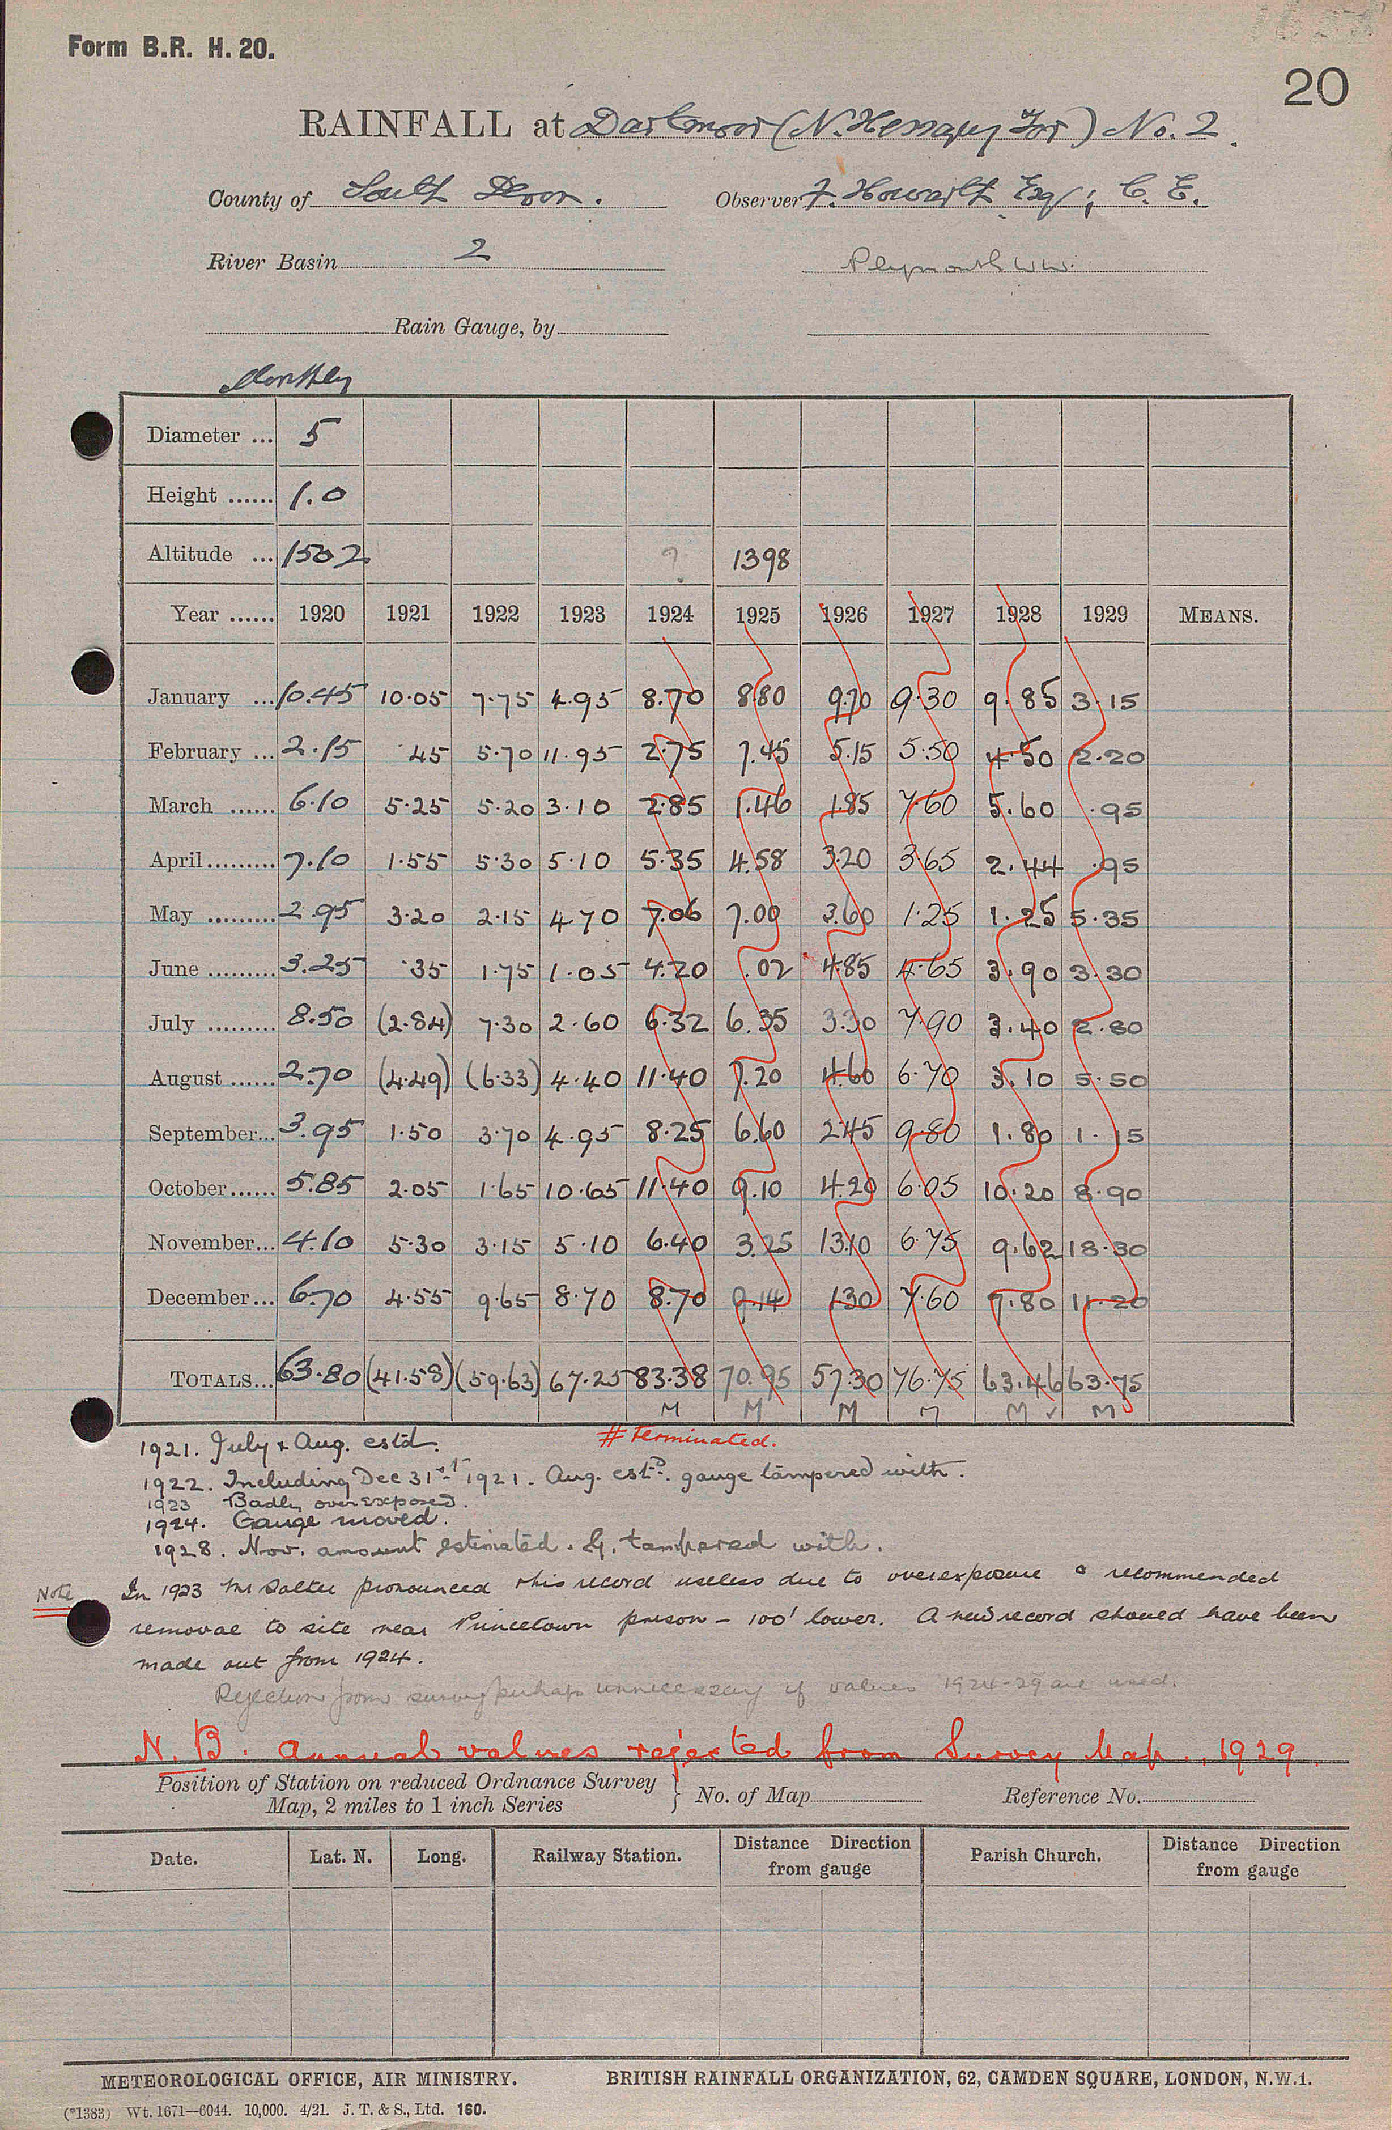 Form B.R. H. 20.
20
RAINFALL at Dartmoor (N. Hessary Tor) No. 2.
County of South Devon. Observer F. Howarth Esq; C. E.
River Basin 2 Plymouth W.W.
Rain Gauge, by
Monthly
Diameter ... 5
Height ...... 1.0
Altitude ... 1502 ? 1398
Year ...... 1920 1921 1922 1923 1924 1925 1926 1927 1928 1929 MEANS.
January ... 10.45 10.05 7.75 4.95 8.70 8.80 9.70 9.30 9.85 3.15
February ... 2.15 .45 5.70 11.95 2.75 7.45 5.15 5.50 4.50 2.20
March ...... 6.10 5.25 5.20 3.10 2.85 1.46 1.85 7.60 5.60 .95
April ......... 7.10 1.55 5.30 5.10 5.35 4.58 3.20 3.65 2.44 .95
May ......... 2.95 3.20 2.15 4.70 7.06 7.00 3.60 1.25 1.25 5.35
June ......... 3.25 .35 1.75 1.05 4.20 .02 4.85 4.65 3.90 3.30
July ......... 8.50 (2.84) 7.30 2.60 6.32 6.35 3.30 7.90 3.40 2.80
August ...... 2.70 (4.49) (6.33) 4.40 11.40 7.20 4.60 6.70 3.10 5.50
September... 3.95 1.50 3.70 4.95 8.25 6.60 2.45 9.80 1.80 1.15
October...... 5.85 2.05 1.65 10.65 11.40 9.10 4.20 6.05 10.20 8.90
November... 4.10 5.30 3.15 5.10 6.40 3.25 13.10 6.75 9.62 18.30
December... 6.70 4.55 9.65 8.70 8.70 9.14 1.30 7.60 7.80 11.20
TOTALS... 63.80 (41.58) (59.63) 67.25 83.38 70.95 57.30 76.75 63.46 63.75
M M M M M ✓ M
# Terminated.
1921. July & Aug. estd.
1922. Including Dec 31st 1921. Aug. estd. gauge tampered with.
1923 Badly overexposed.
1924. Gauge moved.
1928. Nov. amount estimated. G. tampered with.
Note In 1923 Mr Salter pronounced this record useless due to overexposure & recommended
removal to site near Princetown prison - 100' lower. A new record should have been
made out from 1924.
Rejection from survey perhaps unnecessary if values 1924-29 are used.
N.B. Annual values rejected from Survey Map. 1929.
Position of Station on reduced Ordnance Survey Map, 2 miles to 1 inch Series } No. of Map Reference No.
Date. Lat. N. Long. Railway Station. Distance Direction from gauge Parish Church. Distance Direction from gauge
METEOROLOGICAL OFFICE, AIR MINISTRY. BRITISH RAINFALL ORGANIZATION, 62, CAMDEN SQUARE, LONDON, N.W.1.
(*1383) Wt. 1671—6044. 10,000. 4/21. J. T. & S., Ltd. 160.